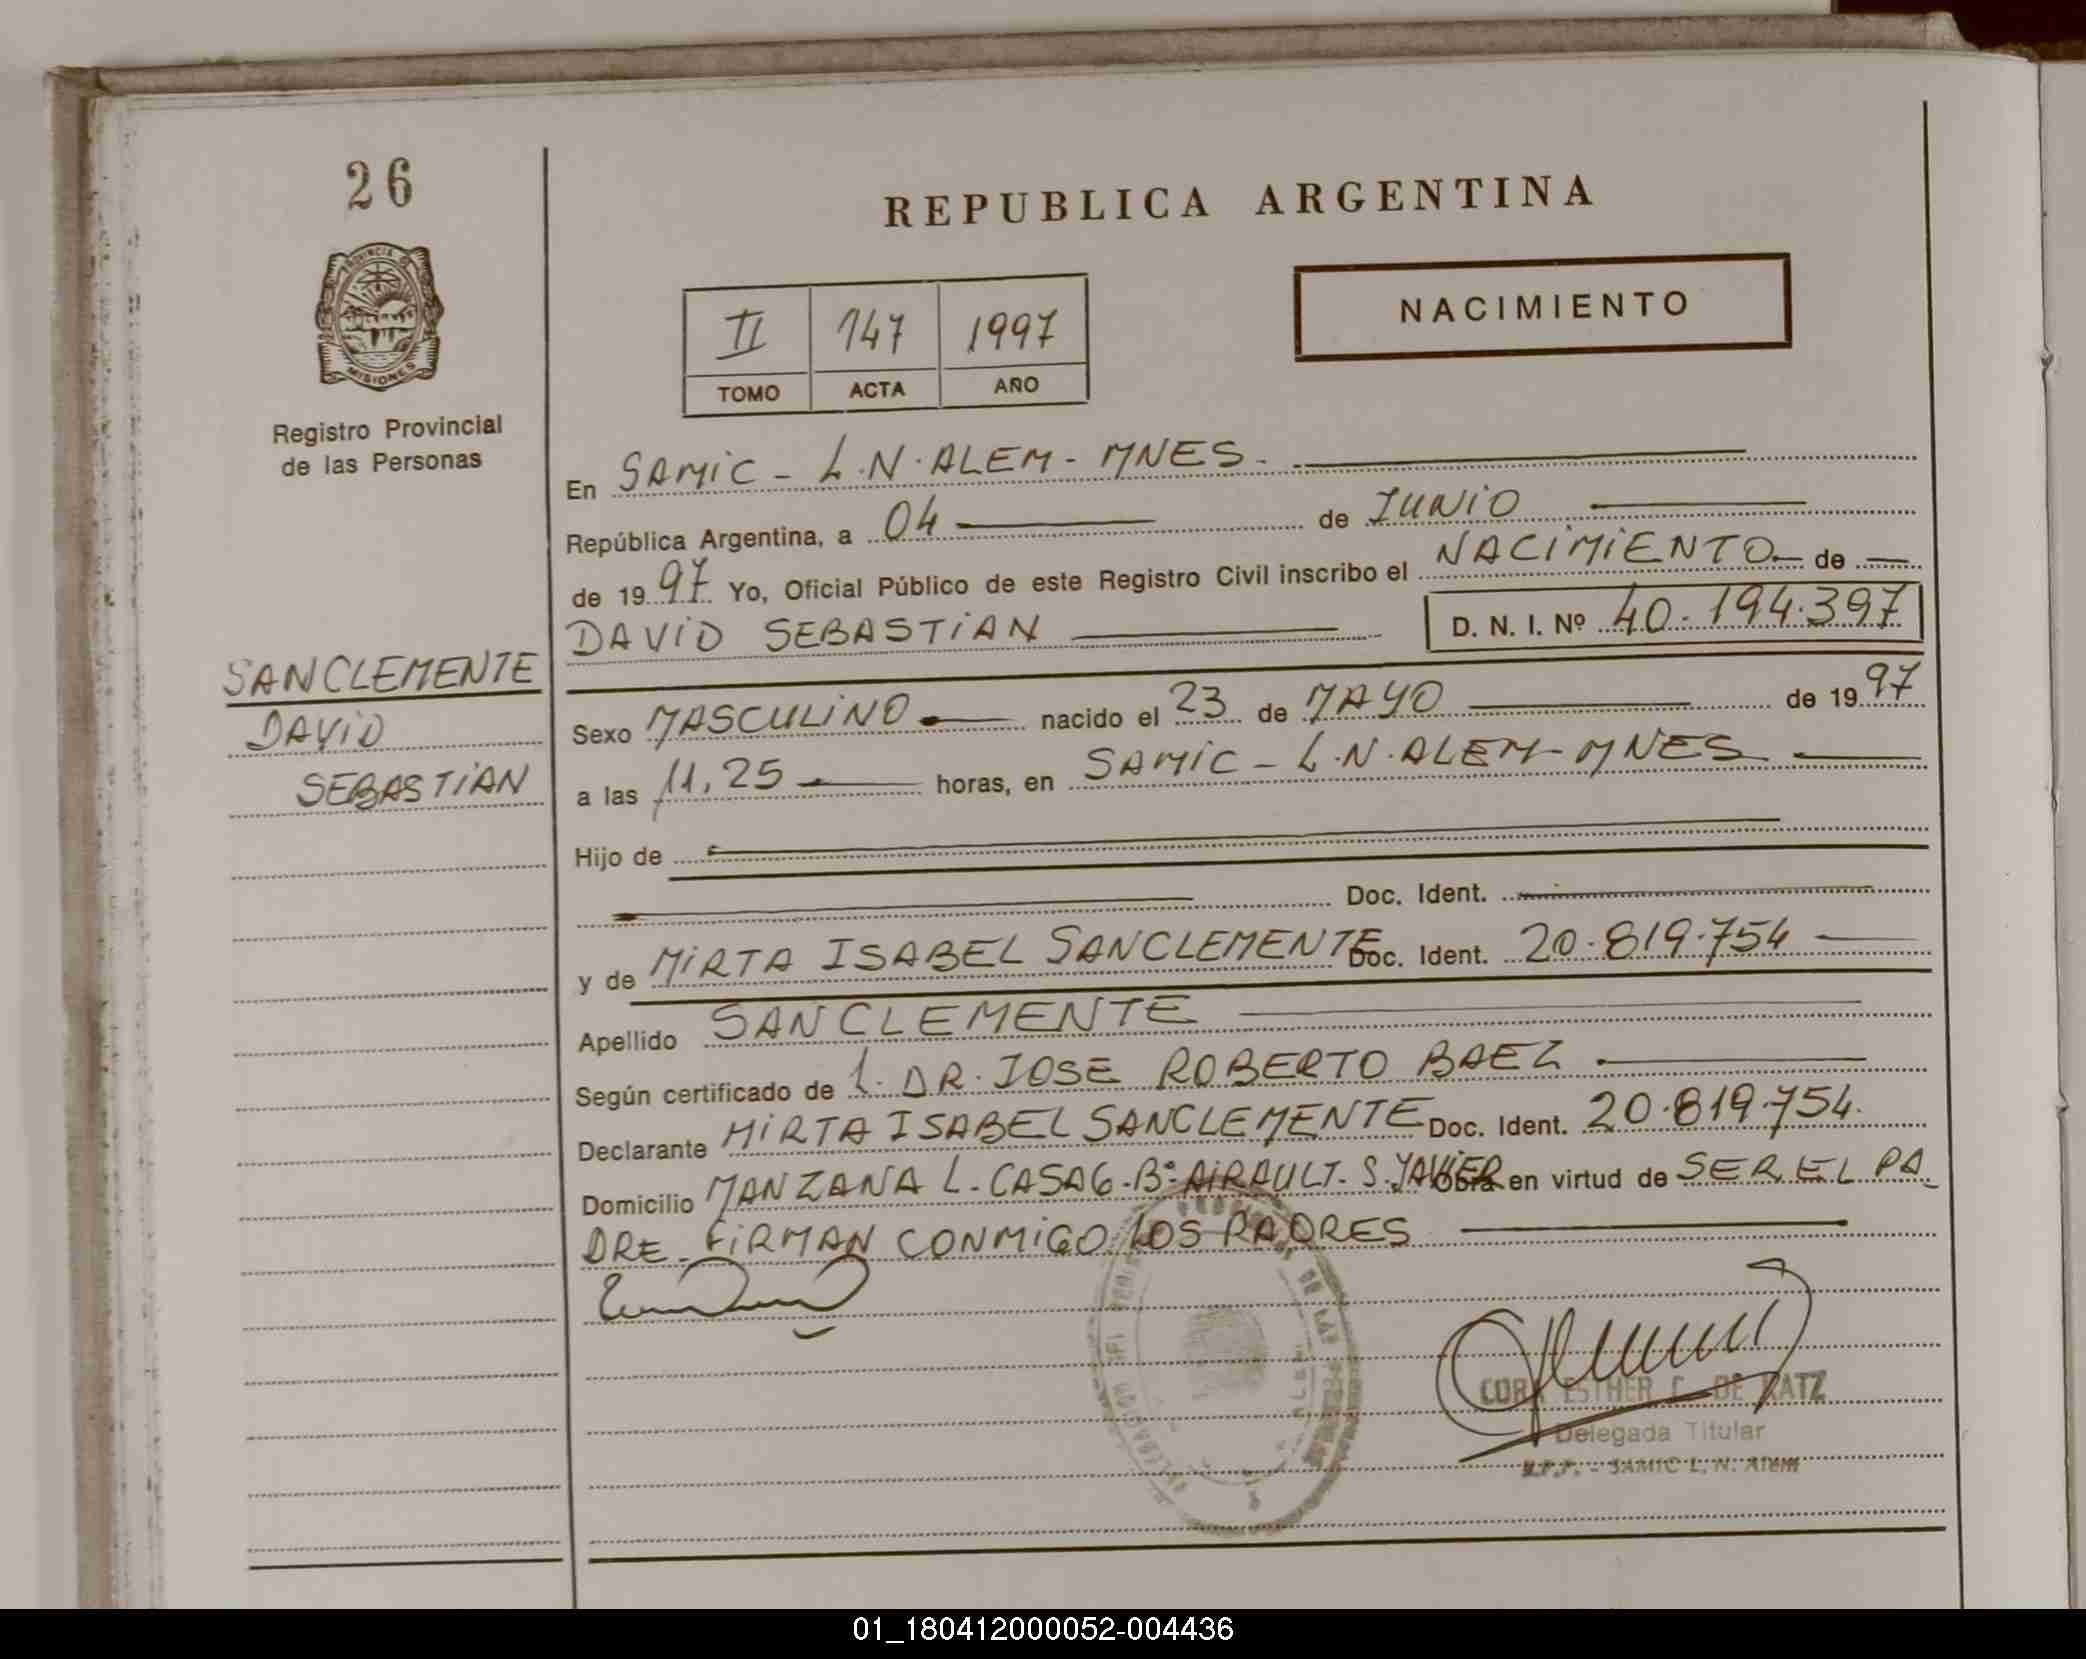 26
REPUBLICA ARGENTINA
PROVINCIA DE
MISIONES
NACIMIENTO
II 147 1997
TOMO ACTA AÑO
Registro Provincial
de las Personas
En SAMIC - L.N.ALEM - MNES.
República Argentina, a 04 de JUNIO
de 1997 Yo, Oficial Público de este Registro Civil inscribo el NACIMIENTO de
DAVID SEBASTIAN D. N. I. Nº 40.194.397
SANCLEMENTE
DAVID
SEBASTIAN
Sexo MASCULINO nacido el 23 de MAYO de 1997
a las 11,25 horas, en SAMIC - L.N.ALEM - MNES
Hijo de
Doc. Ident.
y de MIRTA ISABEL SANCLEMENTE Doc. Ident. 20.819.754
Apellido SANCLEMENTE
Según certificado de L. DR. JOSE ROBERTO BAEZ
Declarante MIRTA ISABEL SANCLEMENTE Doc. Ident. 20.819.754.
Domicilio MANZANA L. CASA 6. Bº AIRAULT. S. JAVIER Obra en virtud de SER EL PA
DRE. FIRMAN CONMIGO LOS PADRES
DE LAS
CORA ESTHER C. DE KATZ
Delegada Titular
R.P.P. - SAMIC L. N. Alem
01_180412000052-004436